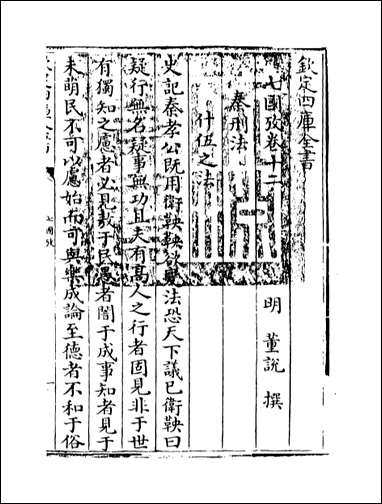 欽定四庫全書
七國攷卷十二
明 董說 撰
秦刑法
什伍之法
史記秦孝公既用衛鞅鞅欲變法恐天下議已衛鞅曰
疑行無名疑事無功且夫有高人之行者固見非于世
有獨知之慮者必見敖于民愚者闇于成事知者見于
未萌民不可以慮始而可與樂成論至德者不和于俗
七國攷